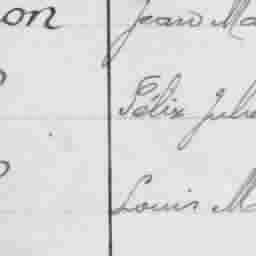 on Jean Ma
Félix Jule
Louis M